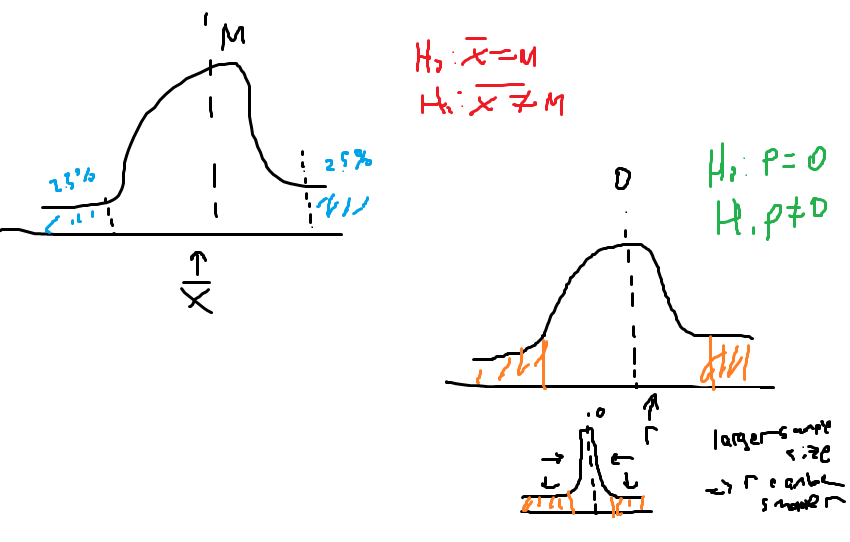 M
H₀: x̄ = M
H₁: x̄ ≠ M
25%
25%
x̄
0
H₀: P = 0
H₁ P ≠ 0
r
0
larger sample
size
⇒ r can be
smaller